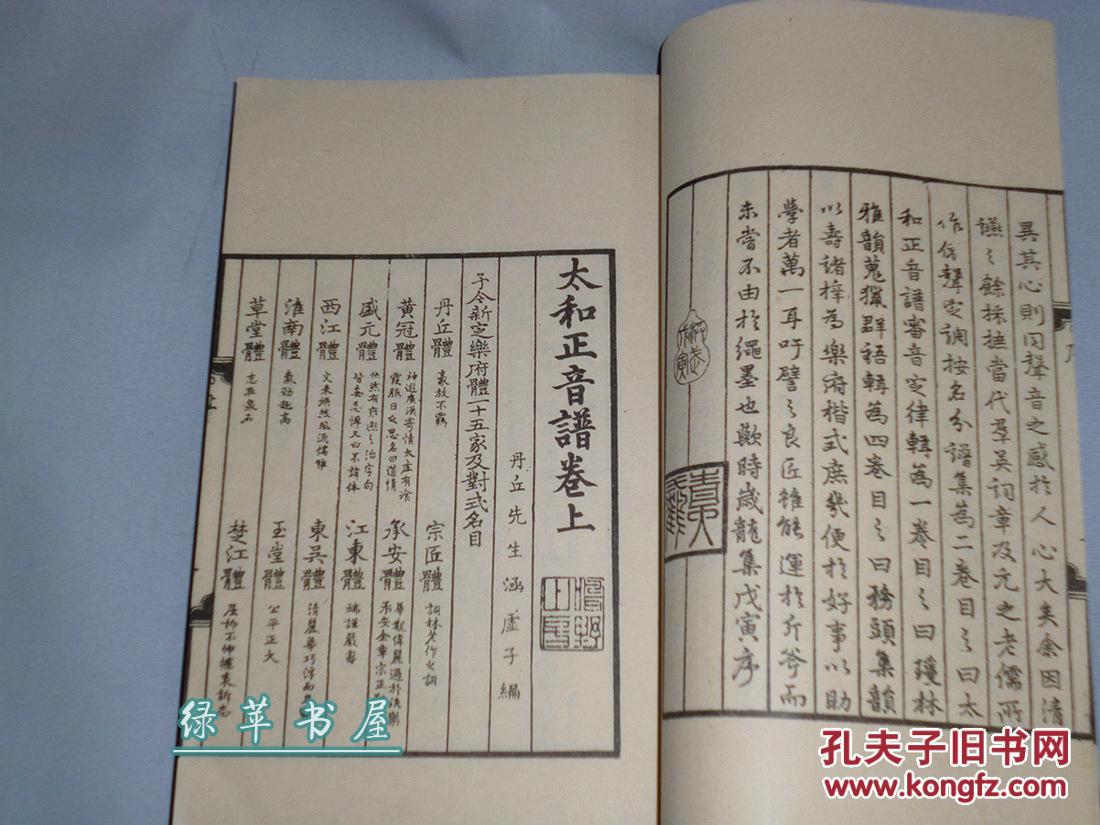 異其心則同聲音之感於人心大矣余因清
讌之餘採摭當代羣英詞章及元之老儒所
作依聲定調按名分譜集為二卷目之曰太
和正音譜審音定律輯為一卷目之曰瓊林
雅韻蒐獵群語輯為四卷目之曰務頭集韻
以壽諸梓為樂府楷式庶幾便於好事以助
學者萬一耳吁譬之良匠雖能運於斤斧而
未嘗不由於繩墨也歟時歲龍集戊寅序
太和正音譜卷上
丹丘先生涵虛子編
予今新定樂府體一十五家及對式名目
丹丘體 豪放不羈
宗匠體 詞林老作之詞
黃冠體 神遊廣漠寄情太虛有飡霞服日之思名曰道情
承安體 華觀偉麗過於泆樂承安金章宗正
盛元體 快然有雍熙之治字句皆無忌憚又曰不諱體
江東體 端謹嚴密
西江體 文采煥然風流儒雅
東吳體 清麗華巧浮而且
淮南體 氣勁趣高
玉堂體 公平正大
草堂體 志在泉石
楚江體 屈抑不伸攄衷訴志
绿苹书屋
孔夫子旧书网
www.kongfz.com